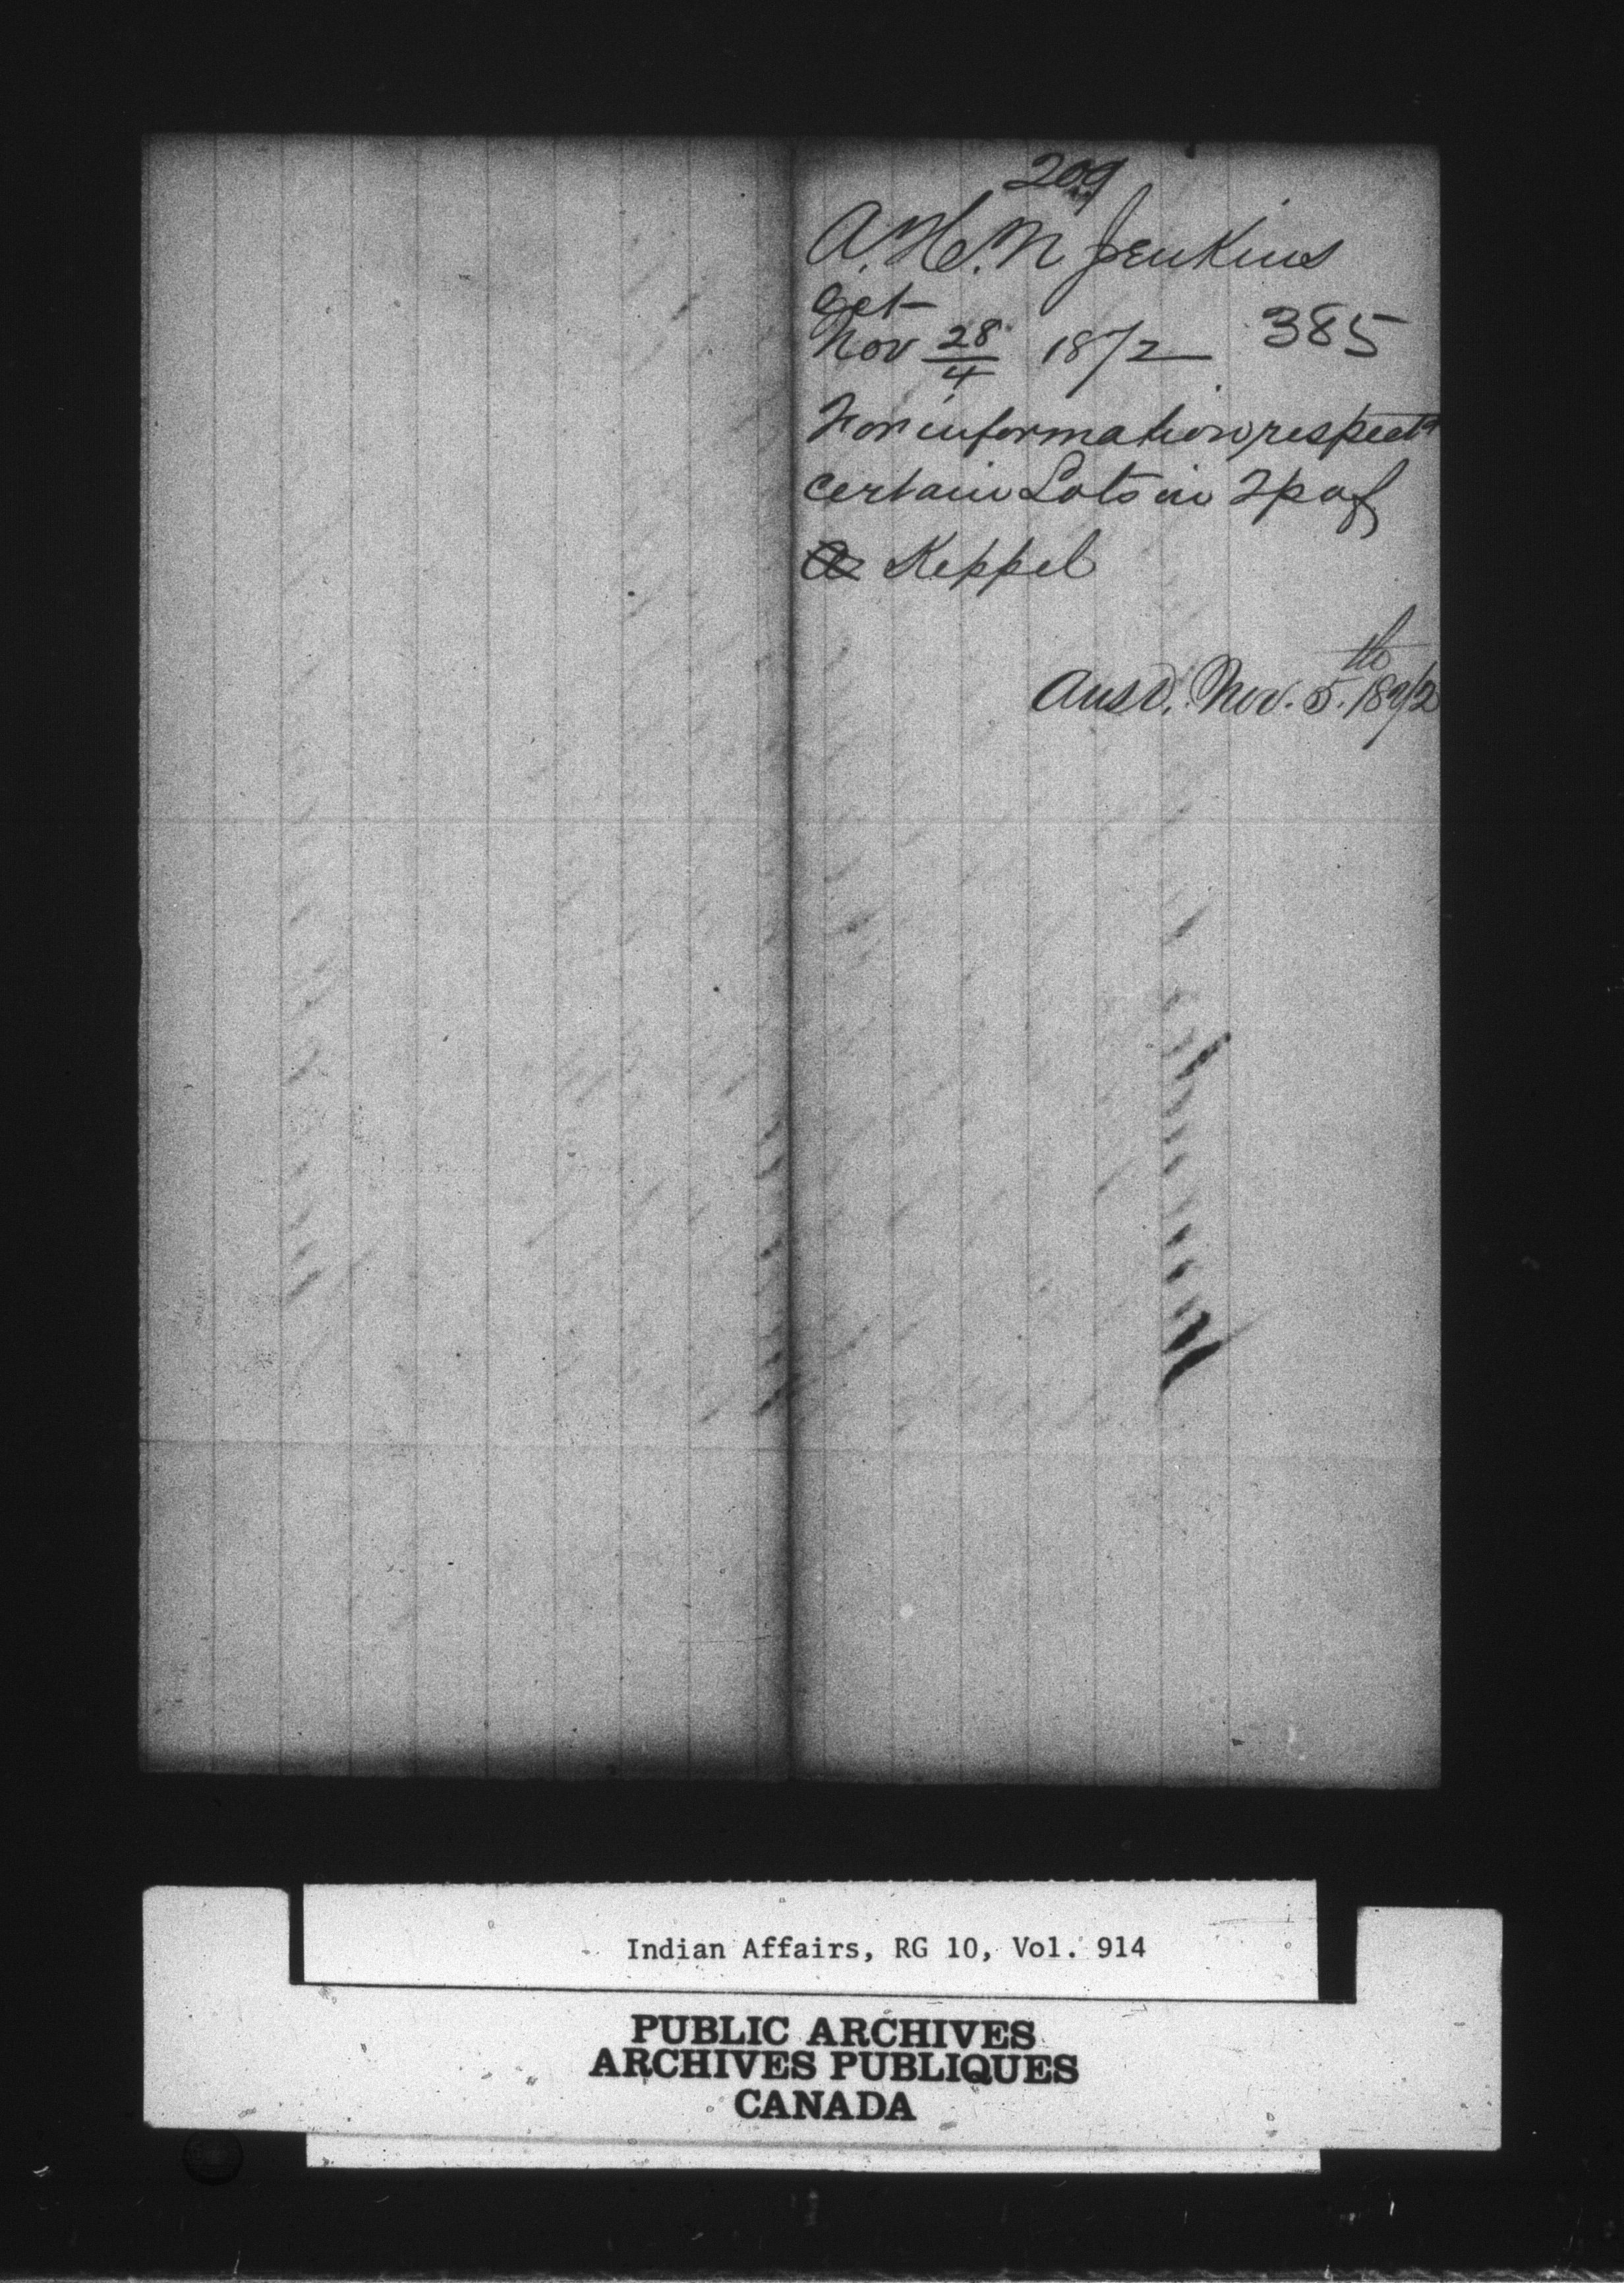 209
A. H. N Jenkins
Oct
Nov 28/4 1872 385
For information respectg
certain Lots in Tp of
Keppel
Ansd. Nov. 5.th 1872
Indian Affairs, RG 10, Vol. 914
PUBLIC ARCHIVES
ARCHIVES PUBLIQUES
CANADA